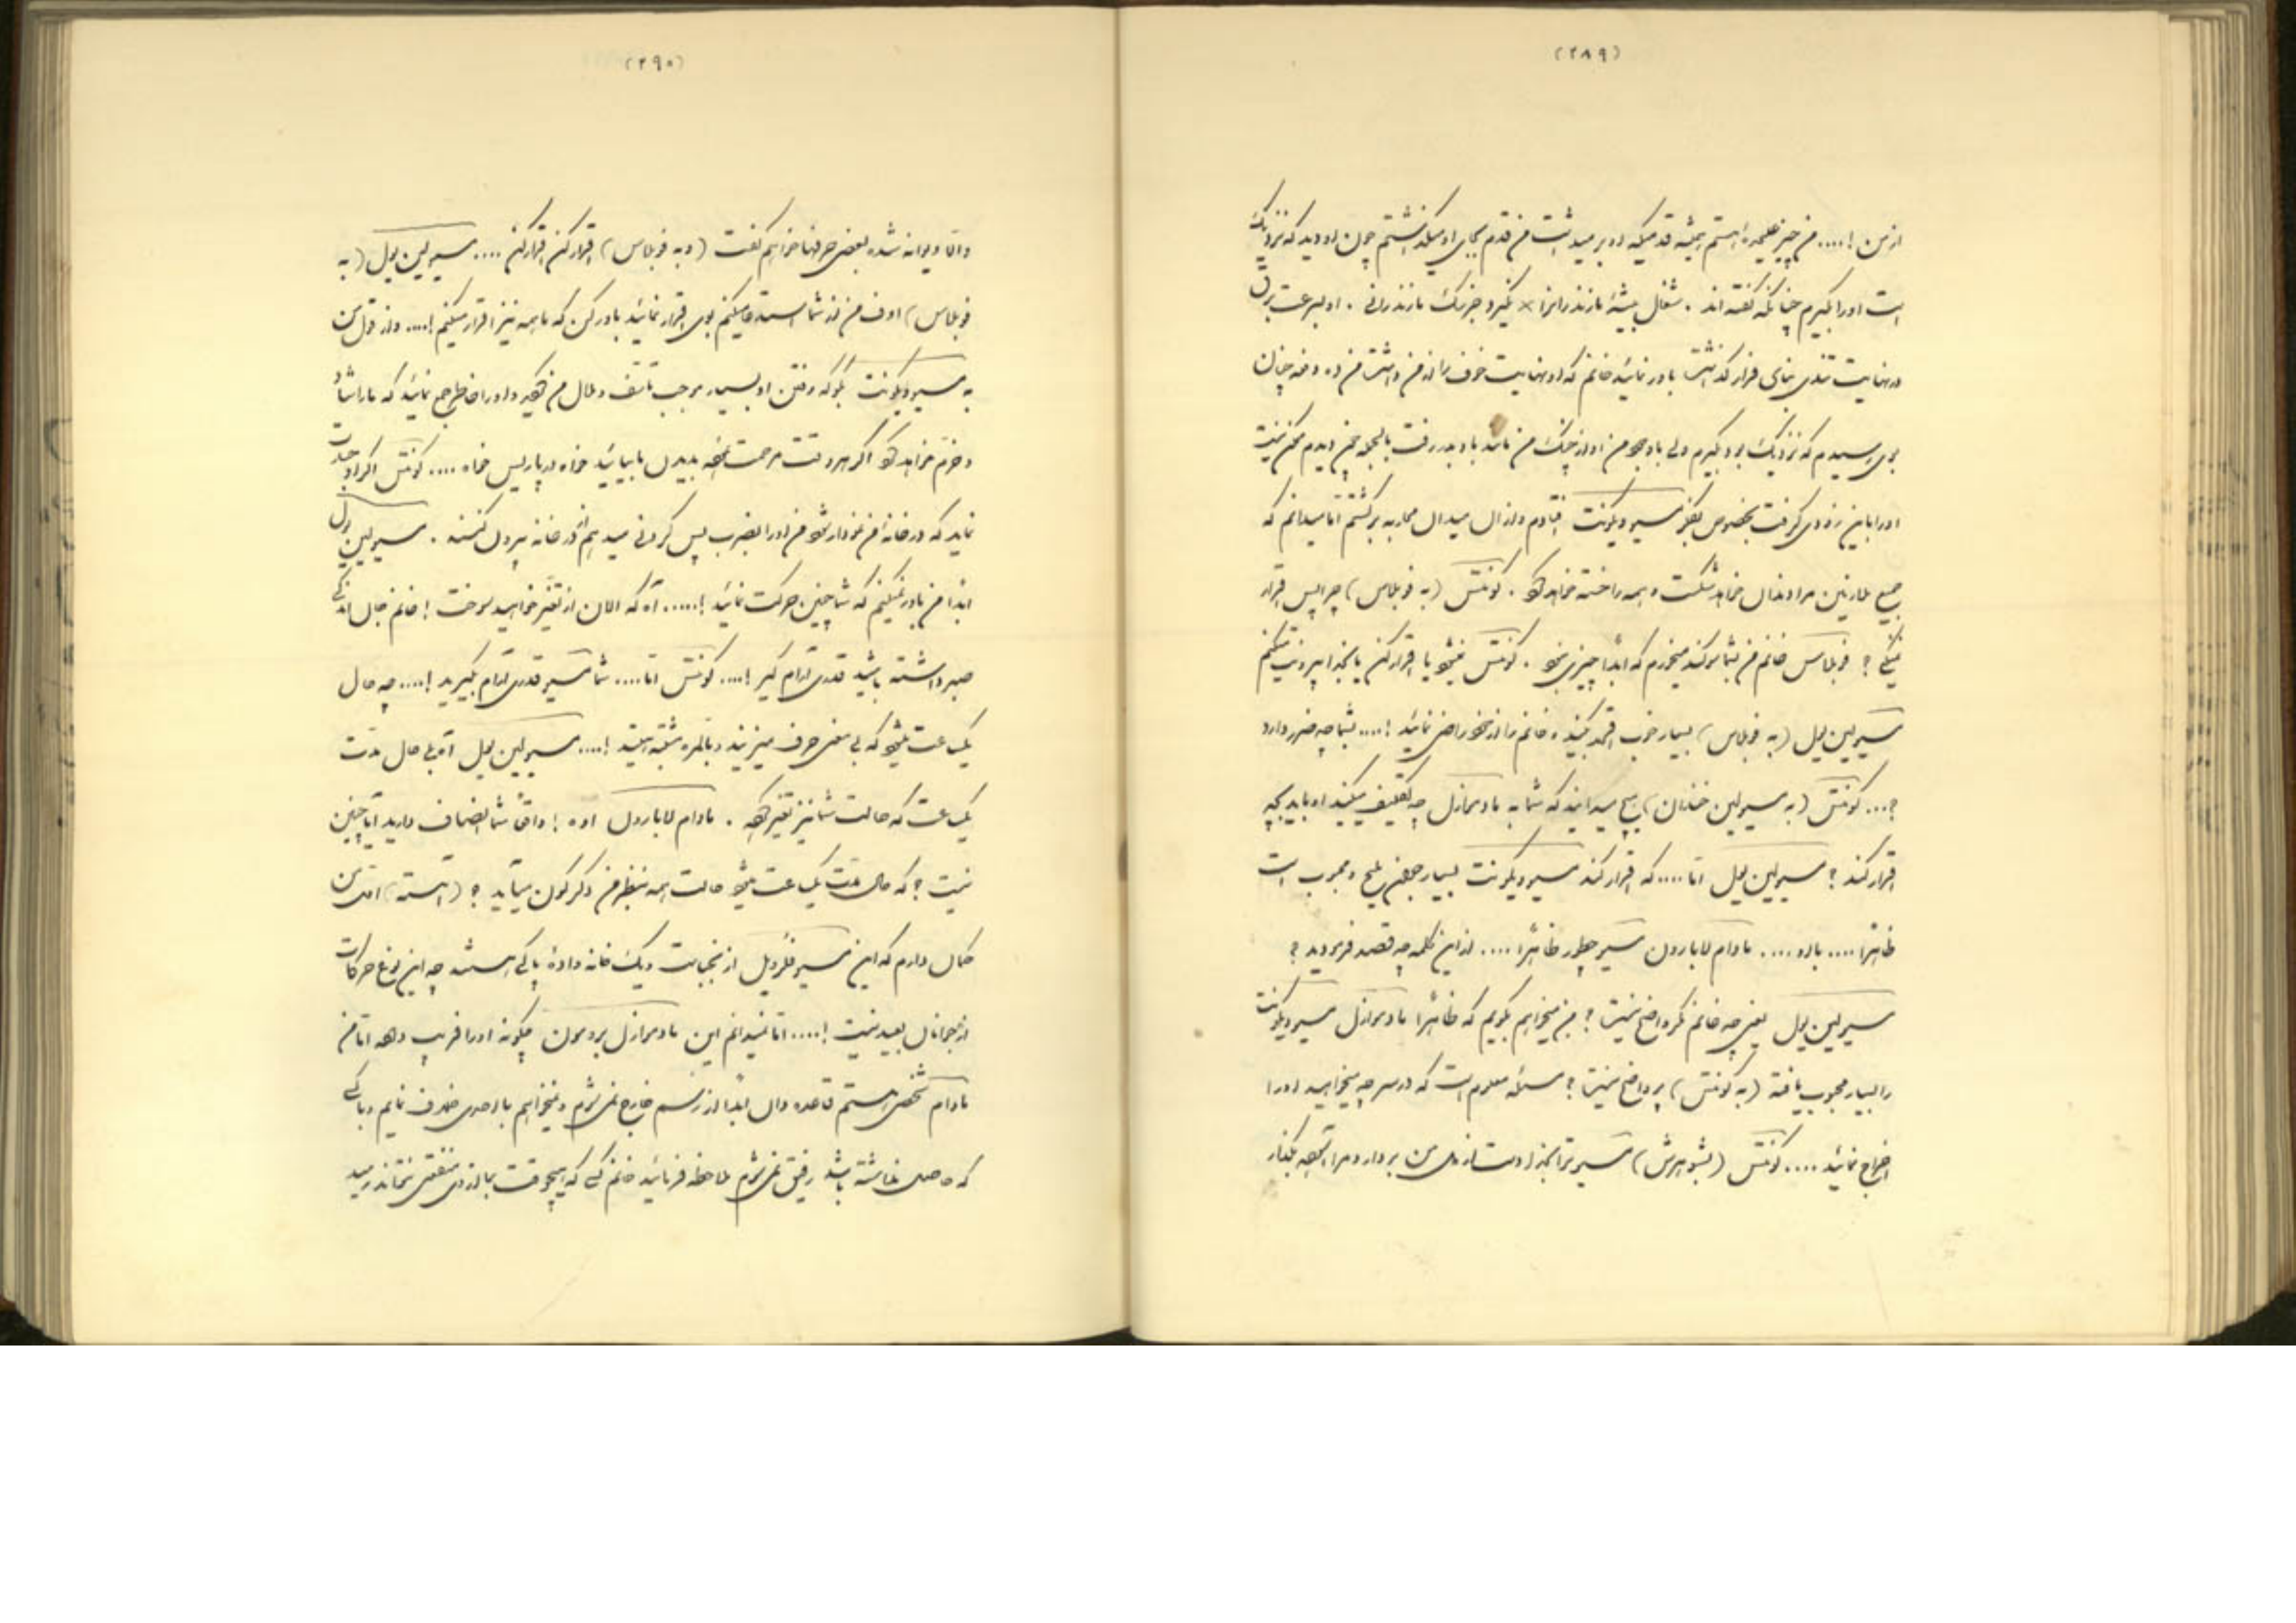 (۲۸۹)
از من !.... من چیز فهمیده هستم همیشه قدمیکه او بر میداشت من قدم بجای او میگذاشتم چون او دید که نزدیک
است او را بگیرم چنانکه گفته اند . شغال بیشهٔ مازندرانرا × نگیرد جز سگ مازندرانی . او بسرعت برق
در نهایت تندی بنای فرار گذاشت باور نمائید خانم که او نهایت خوف را از من داشت من ده دفعه چنان
باو رسیدم که نزدیک بود بگیرم ولی باوجود من او از چنگ من مانند باد بدر رفت بالجمله چون دیدم ممکن نیست
او را باین زودی گرفت بخصوص بفکر مسیو ویکونت افتادم و از آن میدان محاربه برگشتم اما میدانم که
جمیع مارتین مرا دندان خواهد شکست و همه را خسته خواهد کرد . کونتس (به فربلاس) چرا پس اقرار
نمیکنی ؟ فربلاس خانم من بشما سوگند میخورم که ابداً چیزی نبود . کونتس نمیشود یا اقرار کن یا بخدا بیرونت میکنم
مسیو لین یول (به فربلاس) بسیار خوب اقرار کنید و خانم را از خود راضی نمائید !.... بشما چه ضرر دارد
؟... کونتس (به مسیو لین خندان) هیچ میدانید که شما به مادموازل چه تکلیف میکنید او باید بچه
اقرار کند ؟ مسیو لین یول اما.... که اقرار کند مسیو ویکونت بسیار جوان ملیح و محبوب است
ظاهراً .... باو .... مادام لابارون مسیو چطور ظاهراً .... از این کلمه چه قصد فرمودید ؟
مسیو لین یول یعنی چه خانم مگر واضح نیست ؟ من میخواهم بگویم که ظاهراً مادموازل مسیو ویکونت
را بسیار محبوب یافته (به کونتس) پر واضح نیست ؟ مسئله معلوم است که در سر چه میخواهید او را
اخراج نمائید .... کونتس (بشوهرش) مسیو ترا بخدا دست از دل من بردار و مرا آسوده بگذار
(۲۹۰)
والا دیوانه شده بعضی حرفها خواهم گفت (و به فربلاس) اقرار کن اقرار کن .... مسیو لین یول (به
فربلاس) اوف من از شما استدعا میکنم باو اقرار نمائید باور کن که ما همه نیز اقرار میکنیم !.... و از قول من
به مسیو ویکونت بگو که رفتن او بسیار موجب تأسف و ملال من گردید و او را خاطر جمع نمائید که ما را شاد
و خرم خواهد کرد اگر هر وقت مرحمت نموده بدیدن ما بیاید خواه در پاریس خواه .... کونتس اگر او جسارت
نماید که در خانهٔ من نمودار شود من او را بضرب پس گردنی میدهم از در خانه بیرون کنند . مسیو لین یول
ابداً من باور نمیکنم که شما چنین حرکت نمائید !..... آه که الان از تغیر خواهید سوخت ! خانم جان اندکی
صبر داشته باشید قدری آرام گیر !.... کونتس اما.... شما مسیو قدری آرام بگیرید !.... چه حال
یک ساعت میشود که بی معنی حرف میزنید و بالمره مشتبه هستید !.... مسیو لین یول آه بلی حال مدت
یک ساعت که حالت شما نیز تغیر کرده . مادام لابارون اوه ! واقعاً شما انصاف دارید آیا چنین
نیست ؟ که حال مدت یک ساعت میشود حالت همه بنظر من دگرگون میآید ؟ (آهسته) اقدس من
گمان دارم که این مسیو فلرویل از نجبا است و یک خانه دادهٔ پاکی هستند چه این نوع حرکات
از جوانان بعید نیست !.... اما نمیدانم این مادموازل بردمون چگونه او را فریب دهد اما من
مادام شخصی هستم قاعده دان ابداً از رسم خارج نمی شوم و نمیخواهم با احدی خلاف نمایم و با کسی
که حاصلی نداشته باشد رفیق نمی شوم ملاحظه فرمائید خانم کسی که هیچوقت بما از وی منفعتی نتواند رسید